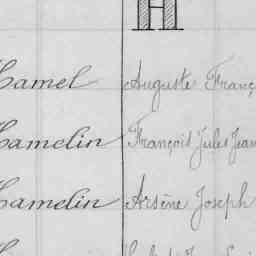 H
Hamel Auguste Franç
Hamelin François Jules Jean
Hamelin Arsène Joseph